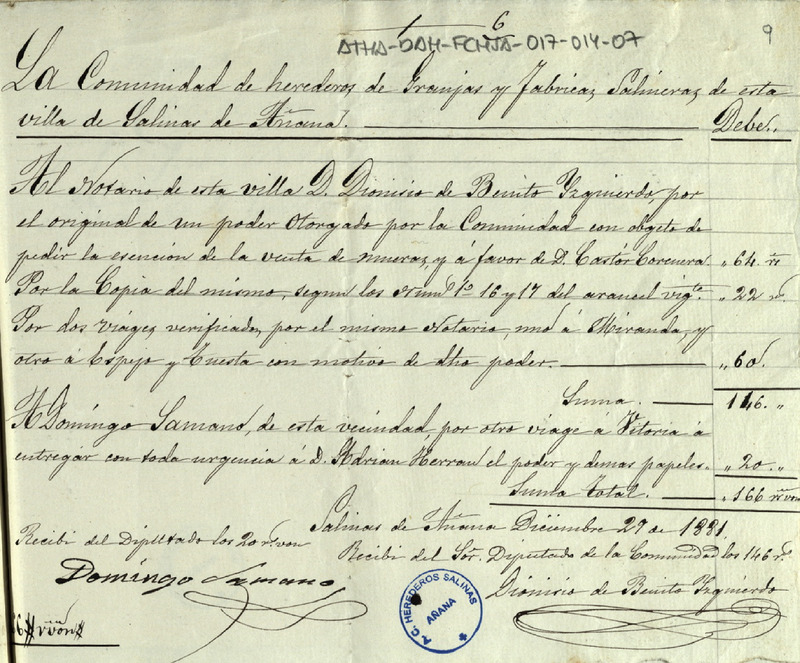 1 6
ATHA-DAH-FCHSA-017-014-07
9
La Comunidad de herederos de Granjas y Fabricas Salineras de esta
villa de Salinas de Añana. Debe.
Al Notario de esta villa D. Dionisio de Benito Yzquierdo, por
el original de un poder otorgado por la Comunidad con obgeto de
pedir la esención de la venta de mueras, y á favor de D. Castór Corcuera „ 64. rs
Por la Copia del mismo, segun los Numos 1º 16 y 17 del arancel vigte. „ 22 rs.
Por dos viages verificados por el mismo Notario, uno á Miranda, y
otro á Espejo y Tuesta con motivo de dho poder. „ 60.
Suma. 146. „
A Domingo Samano, de esta vecindad por otro viage á Vitoria á
entregar con toda urgencia a D. Adrian Herran el poder y demas papeles. „ 20. „
Suma total. „ 166 rs von
Salinas de Añana Diciembre 29 de 1881.
Recibi del Diputado los 20 rs. von
Recibi del Sor. Diputado de la Comunidad los 146 rs.
Domingo Samano
Dionisio de Benito Yzquierdo
A. C. HEREDEROS SALINAS
AÑANA